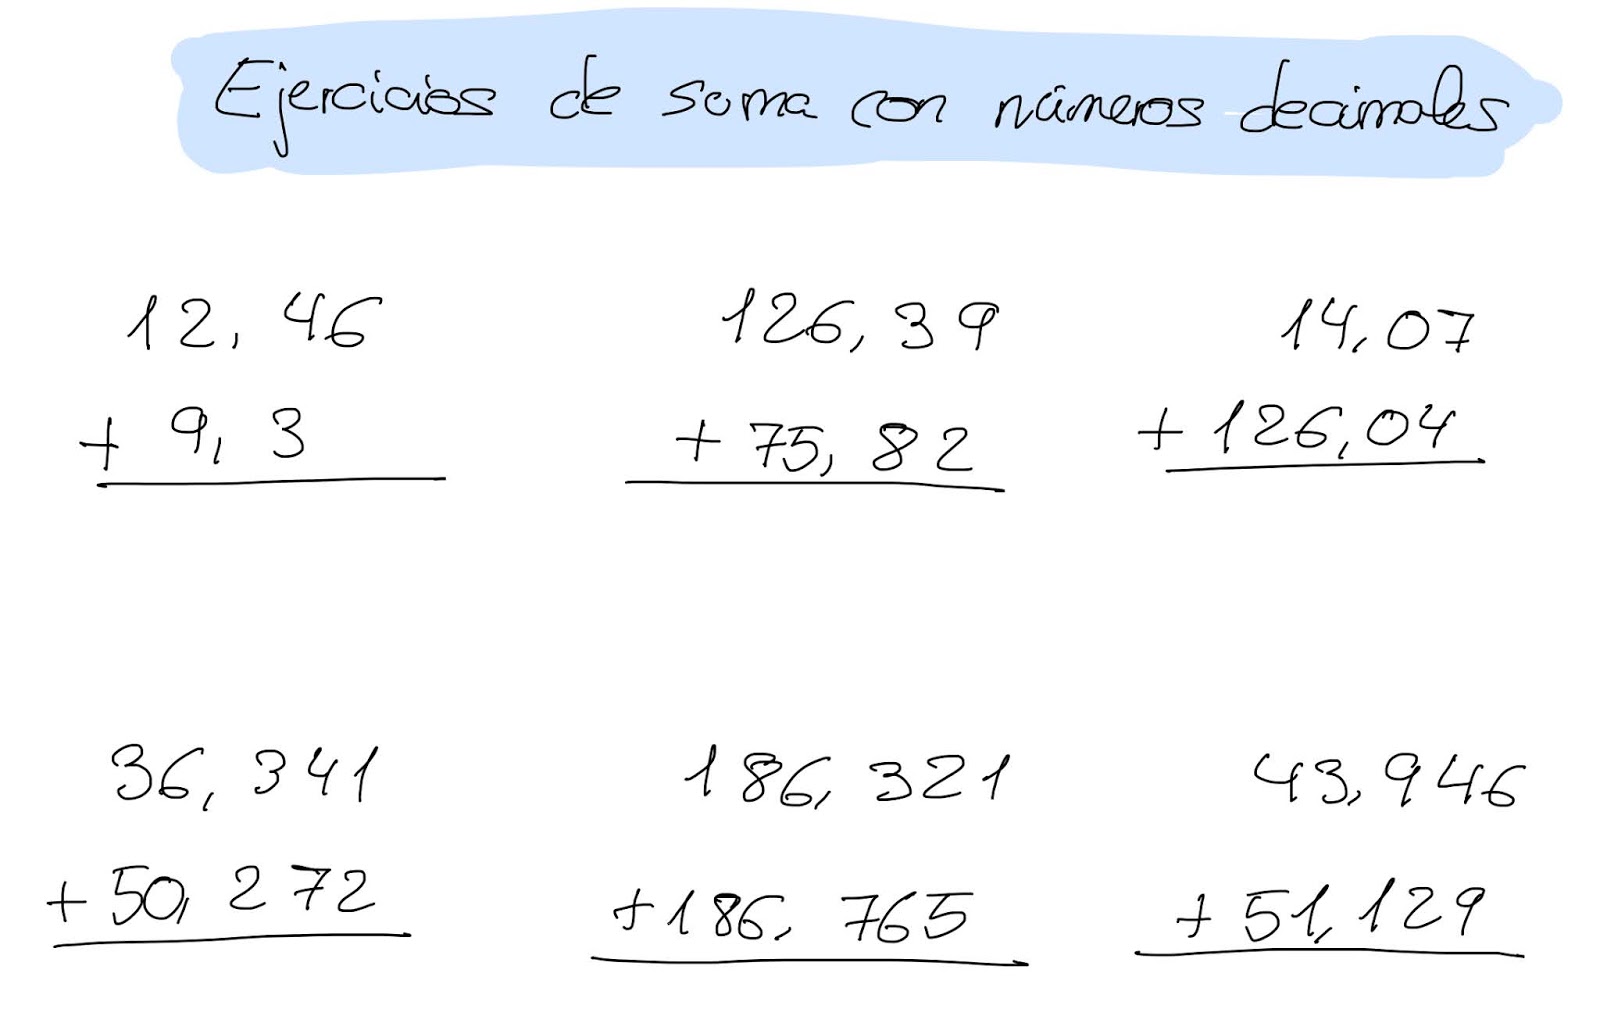 Ejercicios de soma con números decimales
12,46 126,39 14,07
+ 9,3 + 75,82 + 126,04
36,341 186,321 43,946
+ 50,272 + 186,765 + 51,129